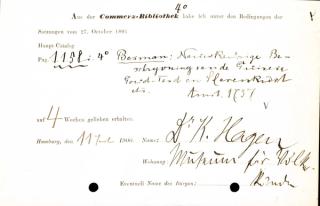 4o
Aus der Commerz-Bibliothek habe ich unter den Bedingungen der
Satzungen vom 27. October 1891
Haupt-Catalog
Pag. 1198: 4o Bosman; Nauwkeurige Be-
schryving van de Guinese
Goud- Tand- en Slavenkust
etc. Amst. 1737
V
auf 4 Wochen geliehen erhalten.
Hamburg, den 11 190 Name: Dr K. Hagen
Wohnung: Museum für Völker-
kunde
Eventuell Name des Bürgen: